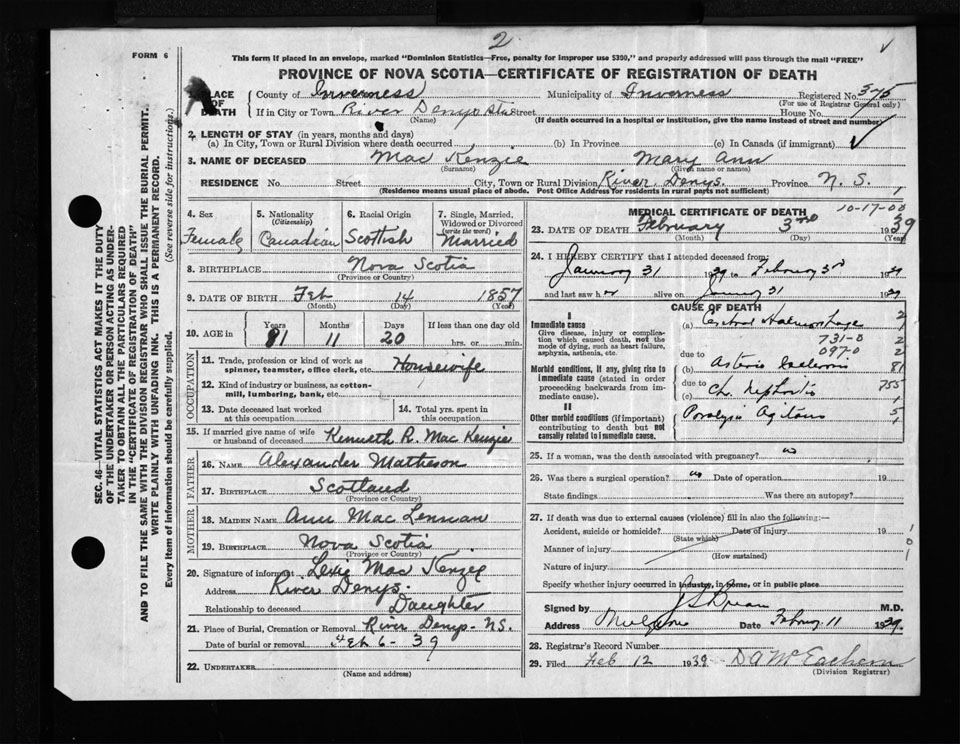 2
FORM 6
This form if placed in an envelope, marked "Dominion Statistics—Free, penalty for improper use $300," and properly addressed will pass through the mail "FREE"
PROVINCE OF NOVA SCOTIA—CERTIFICATE OF REGISTRATION OF DEATH
PLACE OF DEATH
County of Inverness Municipality of Inverness Registered No. 375
(For use of Registrar General only)
If in City or Town River Denys Street House No.
(Name) (If death occurred in a hospital or institution, give the name instead of street and number)
2. LENGTH OF STAY (in years, months and days)
(a) In City, Town or Rural Division where death occurred (b) In Province (c) In Canada (if immigrant)
3. NAME OF DECEASED Mac Kenzie Mary Ann
(Surname) (Given name or names)
RESIDENCE No. Street City, Town or Rural Division River Denys. Province N. S.
(Residence means usual place of abode. Post Office Address for residents in rural parts not sufficient)
SEC. 46—VITAL STATISTICS ACT MAKES IT THE DUTY
OF THE UNDERTAKER OR PERSON ACTING AS UNDER-
TAKER TO OBTAIN ALL THE PARTICULARS REQUIRED
IN THE "CERTIFICATE OF REGISTRATION OF DEATH"
AND TO FILE THE SAME WITH THE DIVISION REGISTRAR WHO SHALL ISSUE THE BURIAL PERMIT.
WRITE PLAINLY WITH UNFADING INK. THIS IS A PERMANENT RECORD.
Every item of information should be carefully supplied. (See reverse side for instructions.)
4. Sex Female
5. Nationality (Citizenship) Canadian
6. Racial Origin Scottish
7. Single, Married, Widowed or Divorced (write the word) Married
8. BIRTHPLACE Nova Scotia
(Province or Country)
9. DATE OF BIRTH Feb 14 1857
(Month) (Day) (Year)
10. AGE in Years 81 Months 11 Days 20 If less than one day hrs. or min.
OCCUPATION
11. Trade, profession or kind of work as spinner, teamster, office clerk, etc. Housewife
12. Kind of industry or business, as cotton-mill, lumbering, bank, etc.
13. Date deceased last worked at this occupation
14. Total yrs. spent in this occupation
15. If married give name of wife or husband of deceased Kenneth R. Mac Kenzie
FATHER
16. NAME Alexander Matheson
17. BIRTHPLACE Scotland
(Province or Country)
MOTHER
18. MAIDEN NAME Ann Mac Lennan
19. BIRTHPLACE Nova Scotia
(Province or Country)
20. Signature of informant Mac Kenzie
Address River Denys.
Relationship to deceased Daughter
21. Place of Burial, Cremation or Removal River Denys - N.S.
Date of burial or removal Feb 6 - 39
22. UNDERTAKER
(Name and address)
MEDICAL CERTIFICATE OF DEATH 10-17-00
23. DATE OF DEATH February 3rd 1939
(Month) (Day) (Year)
24. I HEREBY CERTIFY that I attended deceased from:
January 31 1939 to February 3rd 1939
and last saw her alive on January 31 1939
CAUSE OF DEATH
I
Immediate cause
Give disease, injury or complication which caused death, not the mode of dying, such as heart failure, asphyxia, asthenia, etc.
(a) Cerebral Haemorrhage
731-0
097-0
Morbid conditions, if any, giving rise to immediate cause (stated in order proceeding backwards from immediate cause).
due to
(b) Arterio Sclerosis 81
due to
(c) Ch. Nephritis 755
II
Other morbid conditions (if important) contributing to death but not causally related to immediate cause.
Paralysis Agitans 5
25. If a woman, was the death associated with pregnancy? no
26. Was there a surgical operation? no Date of operation 19
State findings Was there an autopsy?
27. If death was due to external causes (violence) fill in also the following:—
Accident, suicide or homicide? Date of injury 19
(State which)
Manner of injury
(How sustained)
Nature of injury
Specify whether injury occurred in industry, in home, or in public place
Signed by M.D.
Address Date February 11 1939
28. Registrar's Record Number
29. Filed Feb 12 1939 D A McEachern
(Division Registrar)